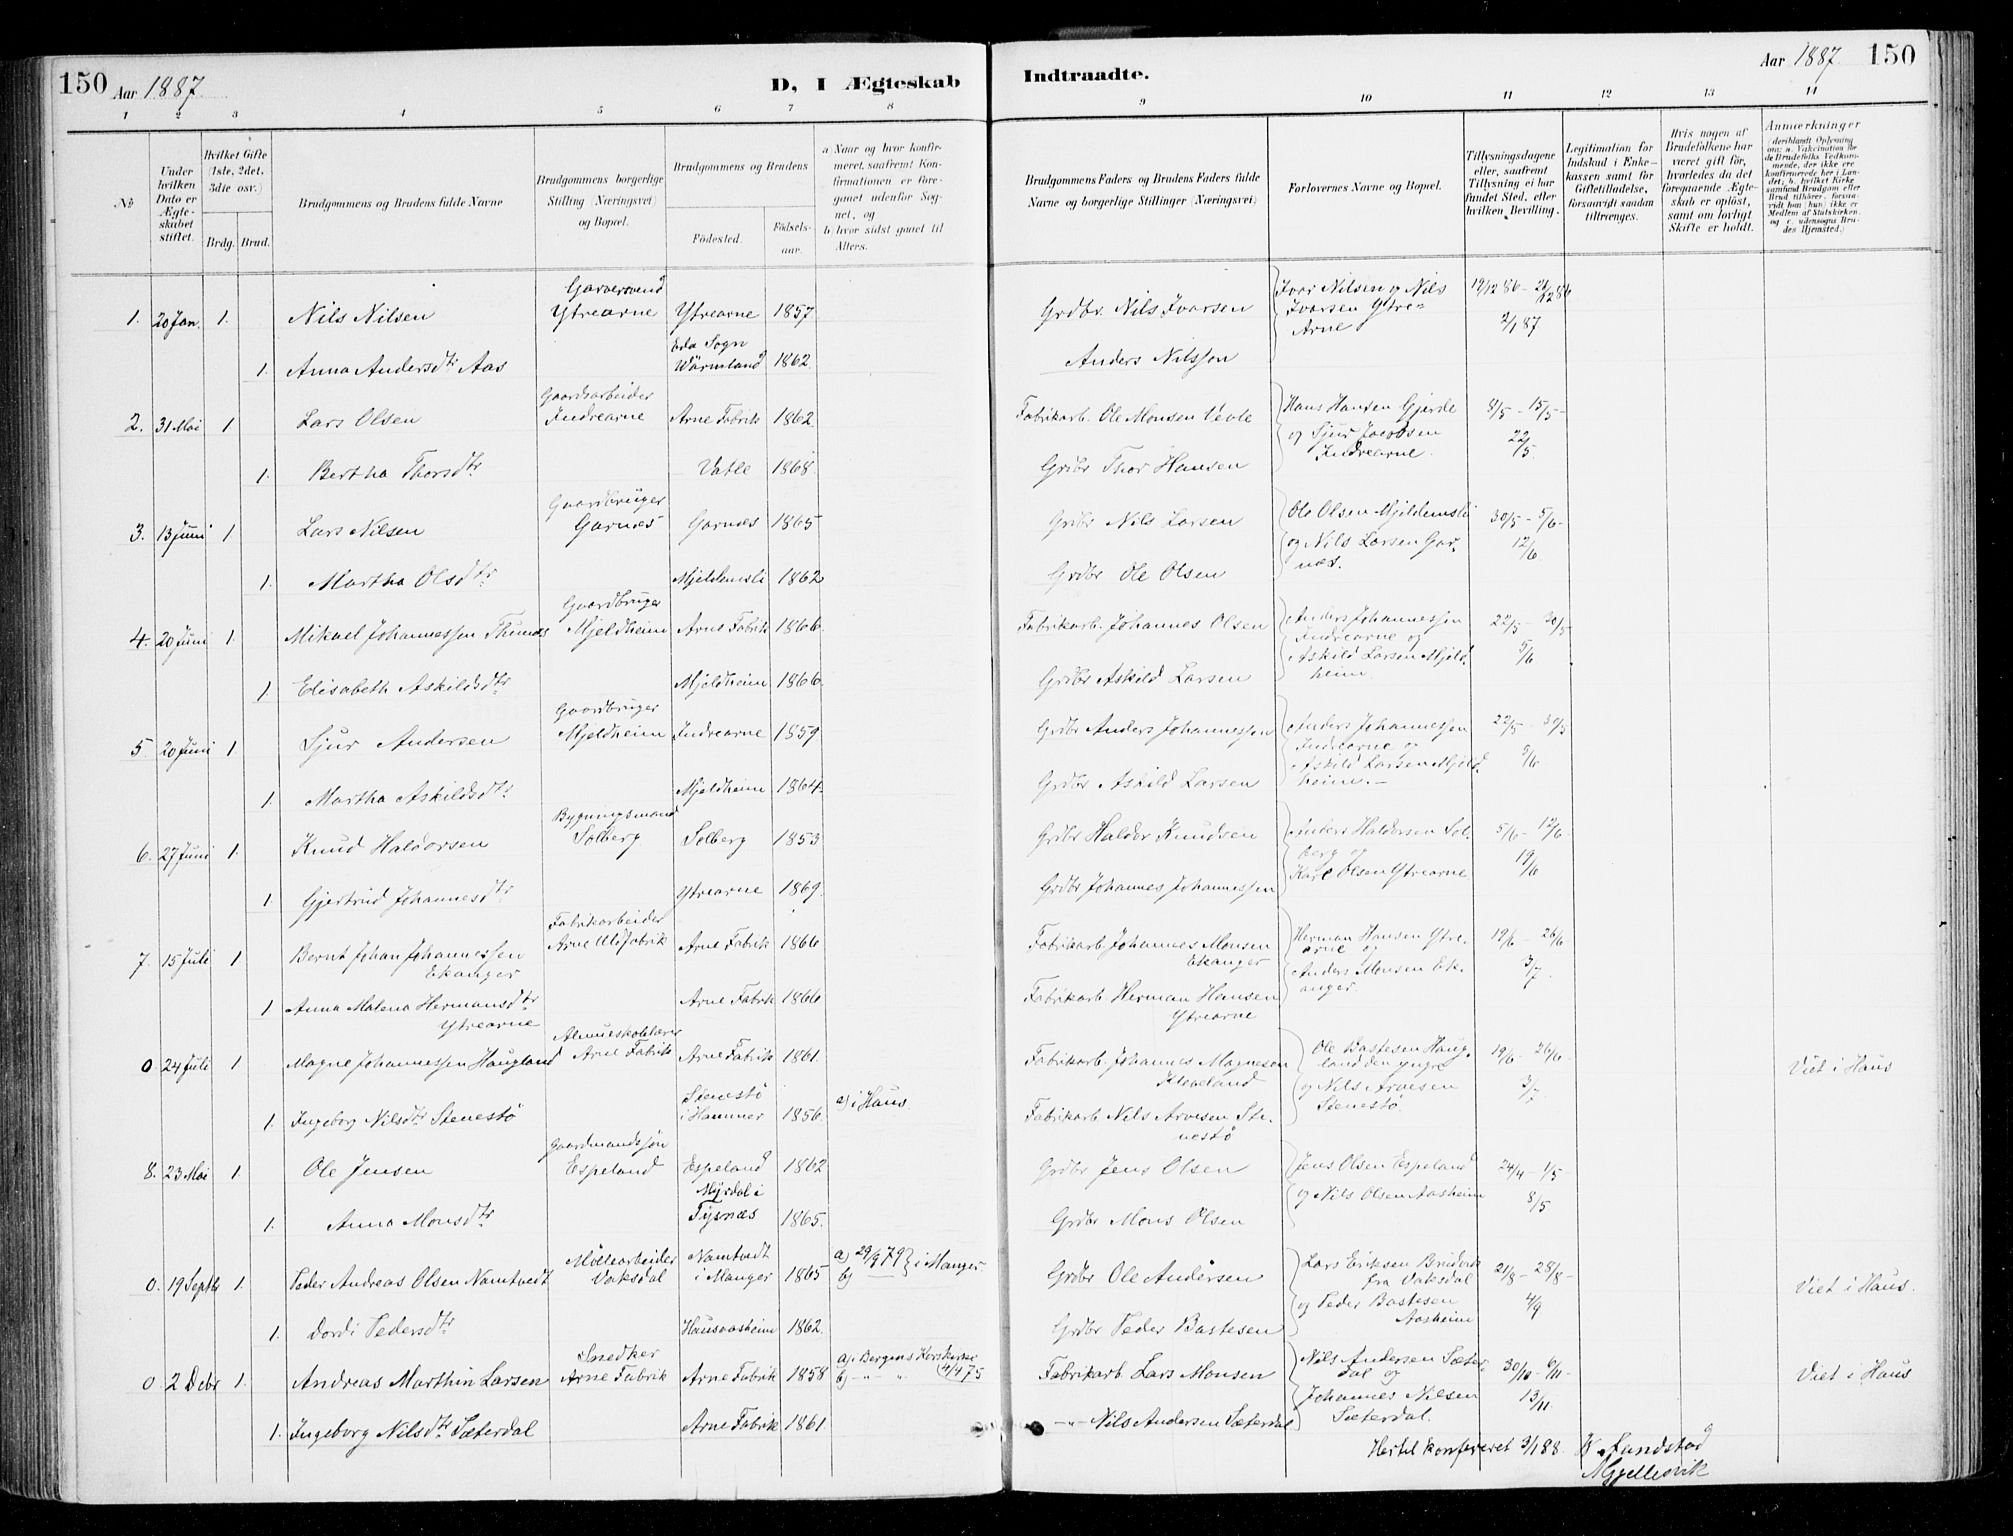 150 Aar 1887. D, I Ægteskab Indtraadte. Aar 1887. 150
1 2 3 4 5 6 7 8 9 10 11 12 13 14
№
Under hvilken Dato er Ægteskabet stiftet.
Hvilket Gifte (1ste, 2det, 3die osv.)
Brdg. Brud.
Brudgommens og Brudens fulde Navne
Brudgommens borgerlige Stilling (Næringsvei) og Bopæl.
Brudgommens og Brudens
Födested. Födselsaar.
a) Naar og hvor konfirmeret, saafremt Konfirmationen er foregaaet udenfor Sognet, og
b) hvor sidst gaaet til Alters.
Brudgommens Faders og Brudens Faders fulde Navne og borgerlige Stillinger (Næringsvei)
Forlovernes Navne og Bopæl.
Tillysningsdagene eller, saafremt Tillysning ei har fundet Sted, efter hvilken Bevilling.
Legitimation for Indskud i Enkekassen samt for Giftetilladelse, forsaavidt saadan tiltrænges.
Hvis nogen af Brudefolkene har været gift før, hvorledes da det foregaaende Ægteskab er opløst, samt om lovligt Skifte er holdt.
Anmærkninger
(deriblandt Oplysning om: a. Vakcination for de Brudefolks Vedkommende, der ikke ere konfirmerede her i Landet; b. hvilket Kirkesamfund Brudgom eller Brud tilhører, forsaavidt han (hun) ikke er Medlem af Statskirken, og c. udensogns Brudes Hjemsted.)
Garversvend
1. 20 Jan. 1. Nils Nilsen Ytrearne Ytrearne 1857 Grdbr. Nils Ivarsen Ivar Nilsen og Nils Ivarsen Ytre-Arne 19/12 86 - 26/12 86 2/1 87
Eda Sogn
1. Anna Andersdtr Aas Wärmland 1862. Anders Nilsson
Gaardsarbeider
2. 31 Mai 1 Lars Olsen Indrearne Arne Fabrik 1862. Fabrikarb. Ole Monsen Vevle Hans Hansen Gjerde og Sjur Jacobsen Indrearne. 8/5 - 15/5 - 22/5.
1. Bertha Thorsdtr Vatle 1868. Grdbr Thor Hansen
Gaardbruger
3. 13 Juni 1 Lars Nilsen Garnæs Garnæs 1865 Grdbr Nils Larsen Ole Olsen Mjeldemsli og Nils Larsen Garnæs. 30/5 - 5/6 - 12/6.
1. Martha Olsdtr Mjeldemsli 1862 Grdbr Ole Olsen
Gaardbruger
4. 20 Juni 1. Mikael Johannessen Thunæs Mjeldheim Arne Fabrik 1866. Fabrikarb. Johannes Olsen Anders Johannessen Indrearne og Askild Larsen Mjeldheim. 22/5 - 30/5 5/6
1. Elisabeth Askildsdtr Mjeldheim 1866. Grdbr Askild Larsen
Gaardbruger
5 20 Juni 1 Sjur Andersen Mjeldheim Indrearne 1859 Grdbr Anders Johannessen Anders Johannessen Indrearne og Askild Larsen Mjeldheim. - 22/5 - 30/5 5/6
1. Martha Askildsdtr Mjeldheim 1864. Grdbr Askild Larsen
Bygningsmand
6. 27 Juni 1. Knud Haldorsen Solberg Solberg 1853 Grdbr Haldor Knudsen Anders Haldorsen Solberg og Karl Olsen Ytrearne 5/6 - 12/6. 19/6
1. Gjertrud Johannesdtr Ytrearne 1869. Grdbr Johannes Johannessen
Fabrikarbeider
7. 15 Juli 1 Bernt Johan Johannessen Ekanger Arne Uldfabrik Arne Fabrik 1866 Fabrikarb. Johannes Monsen Ekanger Herman Hansen Ytrearne og Anders Monsen Ekanger. 19/6 - 26/6 3/7.
1 Anna Malena Hermansdtr Ytrearne Arne Fabrik 1866 Fabrikarb. Herman Hansen Ytrearne
Almueskolelærer
0. 24 Juli 1 Magne Johannessen Haugland Arne Fabrik Arne Fabrik 1861 Fabrikarb. Johannes Magnesen Kloveland Ole Bastesen Haugland den yngre og Nils Arvesen Stenestö. 19/6 - 26/6 - 3/7 Viet i Haus
1. Ingeborg Nilsdtr Stenestö Stenestö i Hammer 1856. a) i Haus. Fabrikarb. Nils Arvesen Stenestö
Gaardmandssön
8. 23 Mai 1. Ole Jensen Espeland Espeland 1862 Grdbr Jens Olsen Jens Olsen Espeland og Nils Olsen Aasheim 24/4 - 1/5 8/5
1. Anna Monsdtr Myrdal i Tysnæs 1865. Grdbr Mons Olsen
Möllearbeider
0. 19 Septbr 1. Peder Andreas Olsen Namtvedt Vaksdal Namtvedt i Manger 1865 a) 29/9 79 b) — } i Manger. Grdbr Ole Andersen Lars Eriksen Brudvik fra Vaksdal og Peder Bastesen Aasheim 21/8 - 28/8 - 4/9 Viet i Haus.
1. Dordi Pedersdtr Hausvaasheim 1862. Grdbr Peder Bastesen
Snedker
0 2 Debr 1. Andreas Marthin Larsen Arne Fabrik Arne Fabrik 1858 a) Bergens Korskirke b) -"- " 4/4 75 Fabrikarb. Lars Monsen Nils Andersen Sæterdal og Johannes Nilsen Sæterdal. 30/10 - 6/11 - 13/11. Viet i Haus
1. Ingeborg Nilsdtr Sæterdal Arne Fabrik 1861. -"- Nils Andersen Sæterdal
Hertil konfereret 3/1 88. Sundstad
Mjellesvik